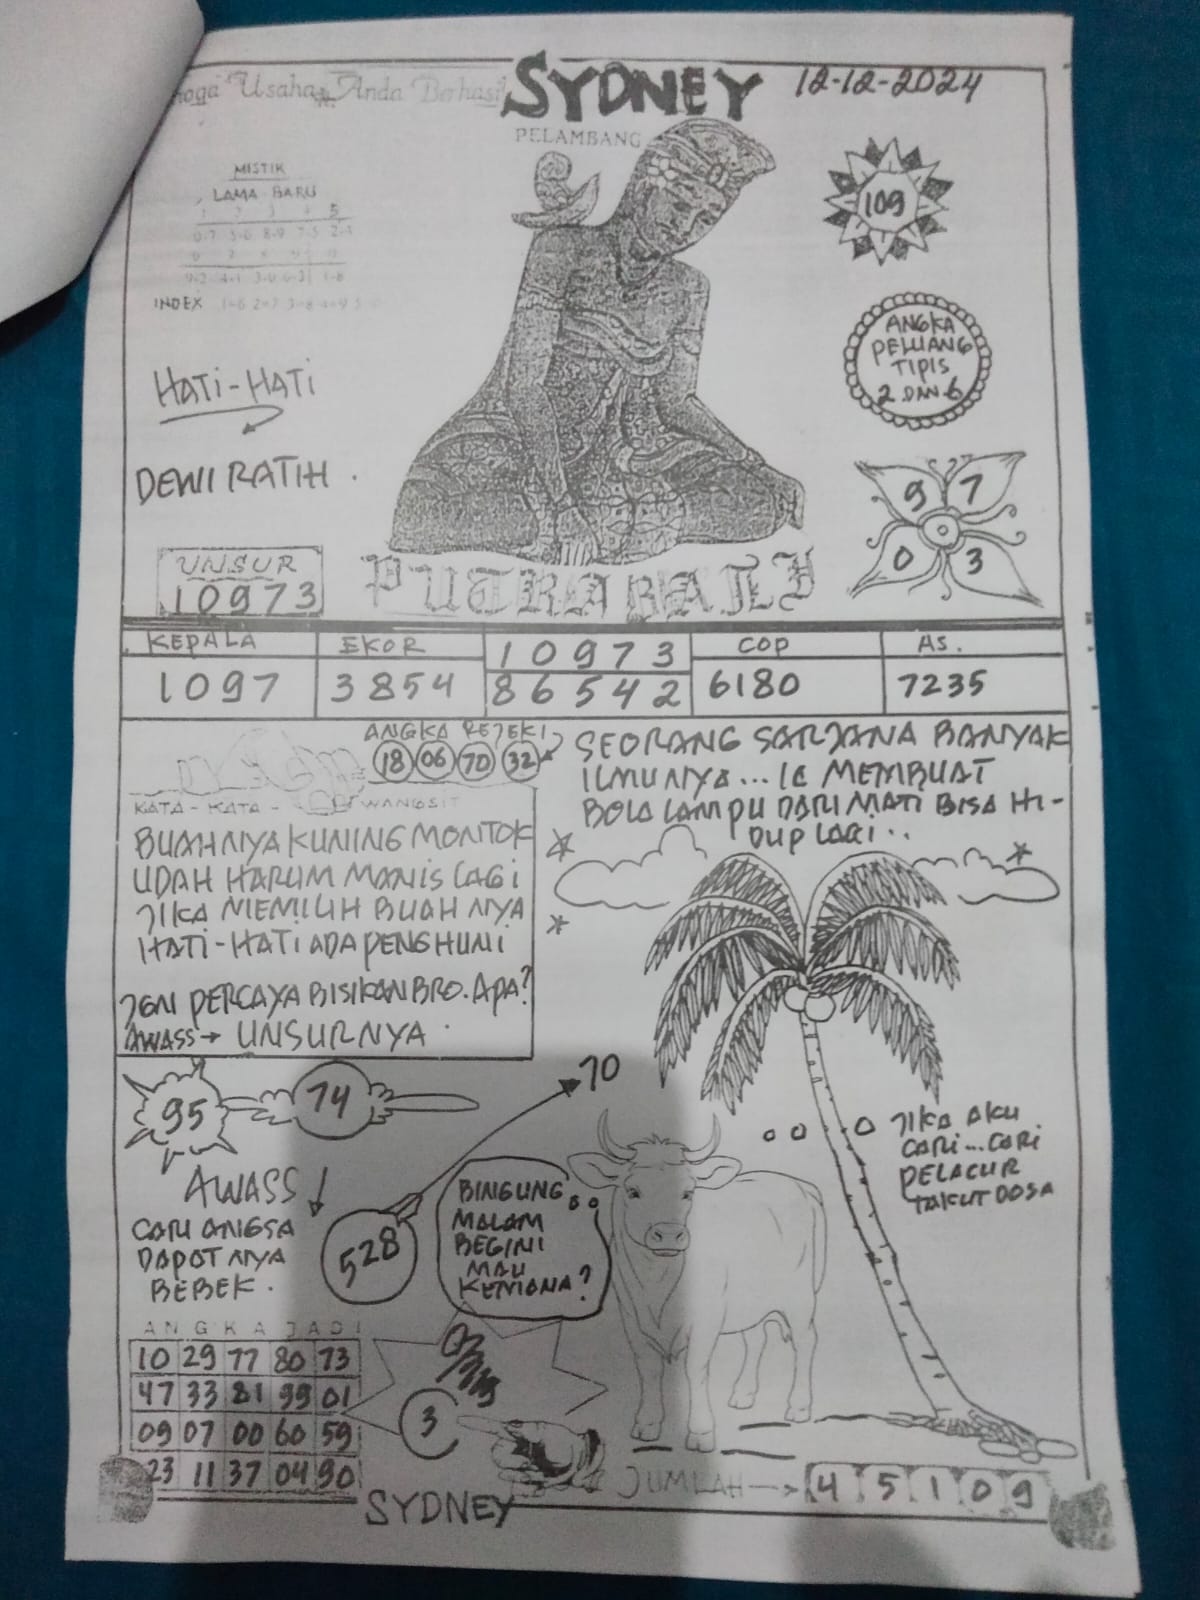 Usaha Anda Berhasil
SYDNEY
12-12-2024
PELAMBANG
MISTIK
LAMA BARU
INDEX
109
ANGKA
PELUANG
TIPIS
2 DAN 6
HATI-HATI
DEWI RATIH.
9 7
0 3
UNSUR
10973
PUTRA BALI
KEPALA EKOR 10973 COP AS.
1097 3854 86542 6180 7235
ANGKA REJEKI
18 06 70 32
SEORANG SARJANA BANYAK
ILMUNYA... IA MEMBUAT
BOLA LAMPU DARI MATI BISA HI-
DUP LAGI..
KATA-KATA- WANGSIT
BUAHNYA KUNING MONTOK
UDAH HARUM MANIS LAGI
JIKA MEMILIH BUAHNYA
HATI-HATI ADA PENGHUNI
JGN PERCAYA BISIKAN BRO. APA?
AWASS→ UNSURNYA.
95 74
70
AWASS
CARI ANGSA
DAPATNYA
BEBEK.
528
BINGUNG
MALAM
BEGINI
MAU
KEMANA?
JIKA AKU
CARI...CARI
PELACUR
TAKUT DOSA
ANGKA JADI
10 29 77 80 73
47 33 81 99 01
09 07 00 60 59
23 11 37 04 90
3
JUMLAH→ 4 5 1 0 9
SYDNEY